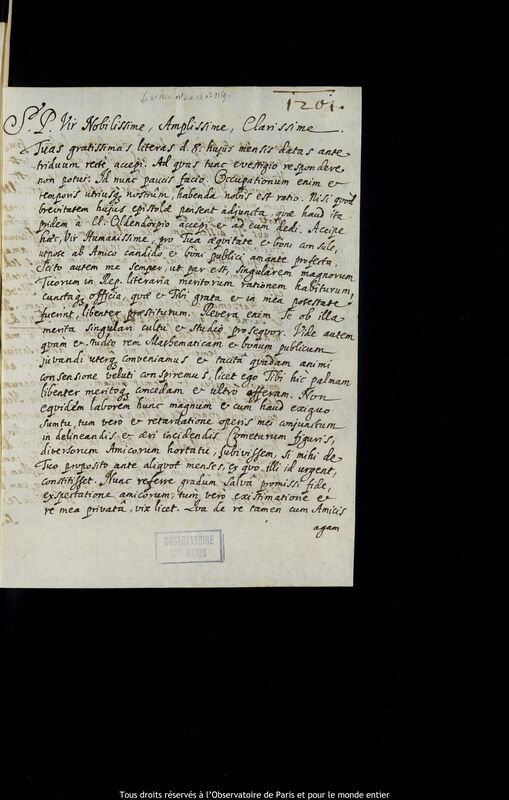 1201.
S. P. Vir Nobilissime, Amplissime, Clarissime.
Tuas gratissimas literas d. 8. hujus mensis datas ante
triduum recte accepi. Ad quas tunc evestigio respondere
non potui. Id nunc paucis facio. Occupationum enim et
temporis utriusq; nostrûm, habenda nobis est ratio. Nisi quod
brevitatem hujus epistolæ pensent adjuncta, quæ haud ita
pridem à Cl. Oldenborgio accepi et ad eum dedi. Accipe
hæc, Vir Humanissime, pro Tua æquitate et boni consule,
utpote ab Amico candido et boni publici amante profecta.
Scito autem me semper, ut par est, singularem magnorum
Tuorum in Rep. literaria meritorum rationem habiturum,
cunctaq; officia, quæ et Tibi grata et in mea potestate
fuerint, libenter præstiturum. Revera enim Te ob illa
merita singulari cultu et studio prosequor. Vide autem
quàm et studio rem Mathematicam et bonum publicum
juvandi uterq; conveniamus et tacitâ quâdam animi
consensione veluti conspiremus, licet ego Tibi hic palmam
libenter meritoq; concedam et ultrò offeram. Non
equidem laborem hunc magnum et cum haud exiguo
sumtu, tum verò et retardatione operis mei conjunctum
in delineandis et æri incidendis Cometarum figuris,
diversorum Amicorum hortatu, subivissem, si mihi de
Tuo proposito ante aliquot menses, ex quo illi id urgent,
constitisset. Nunc referre gradum salvâ promissi fide,
exspectatione amicorum, tum verò existimatione et
re mea privatâ, vix licet. Qua de re tamen cum Amicis
agam
OBSERVATOIRE
DE PARIS
Tous droits réservés à l'Observatoire de Paris et pour le monde entier